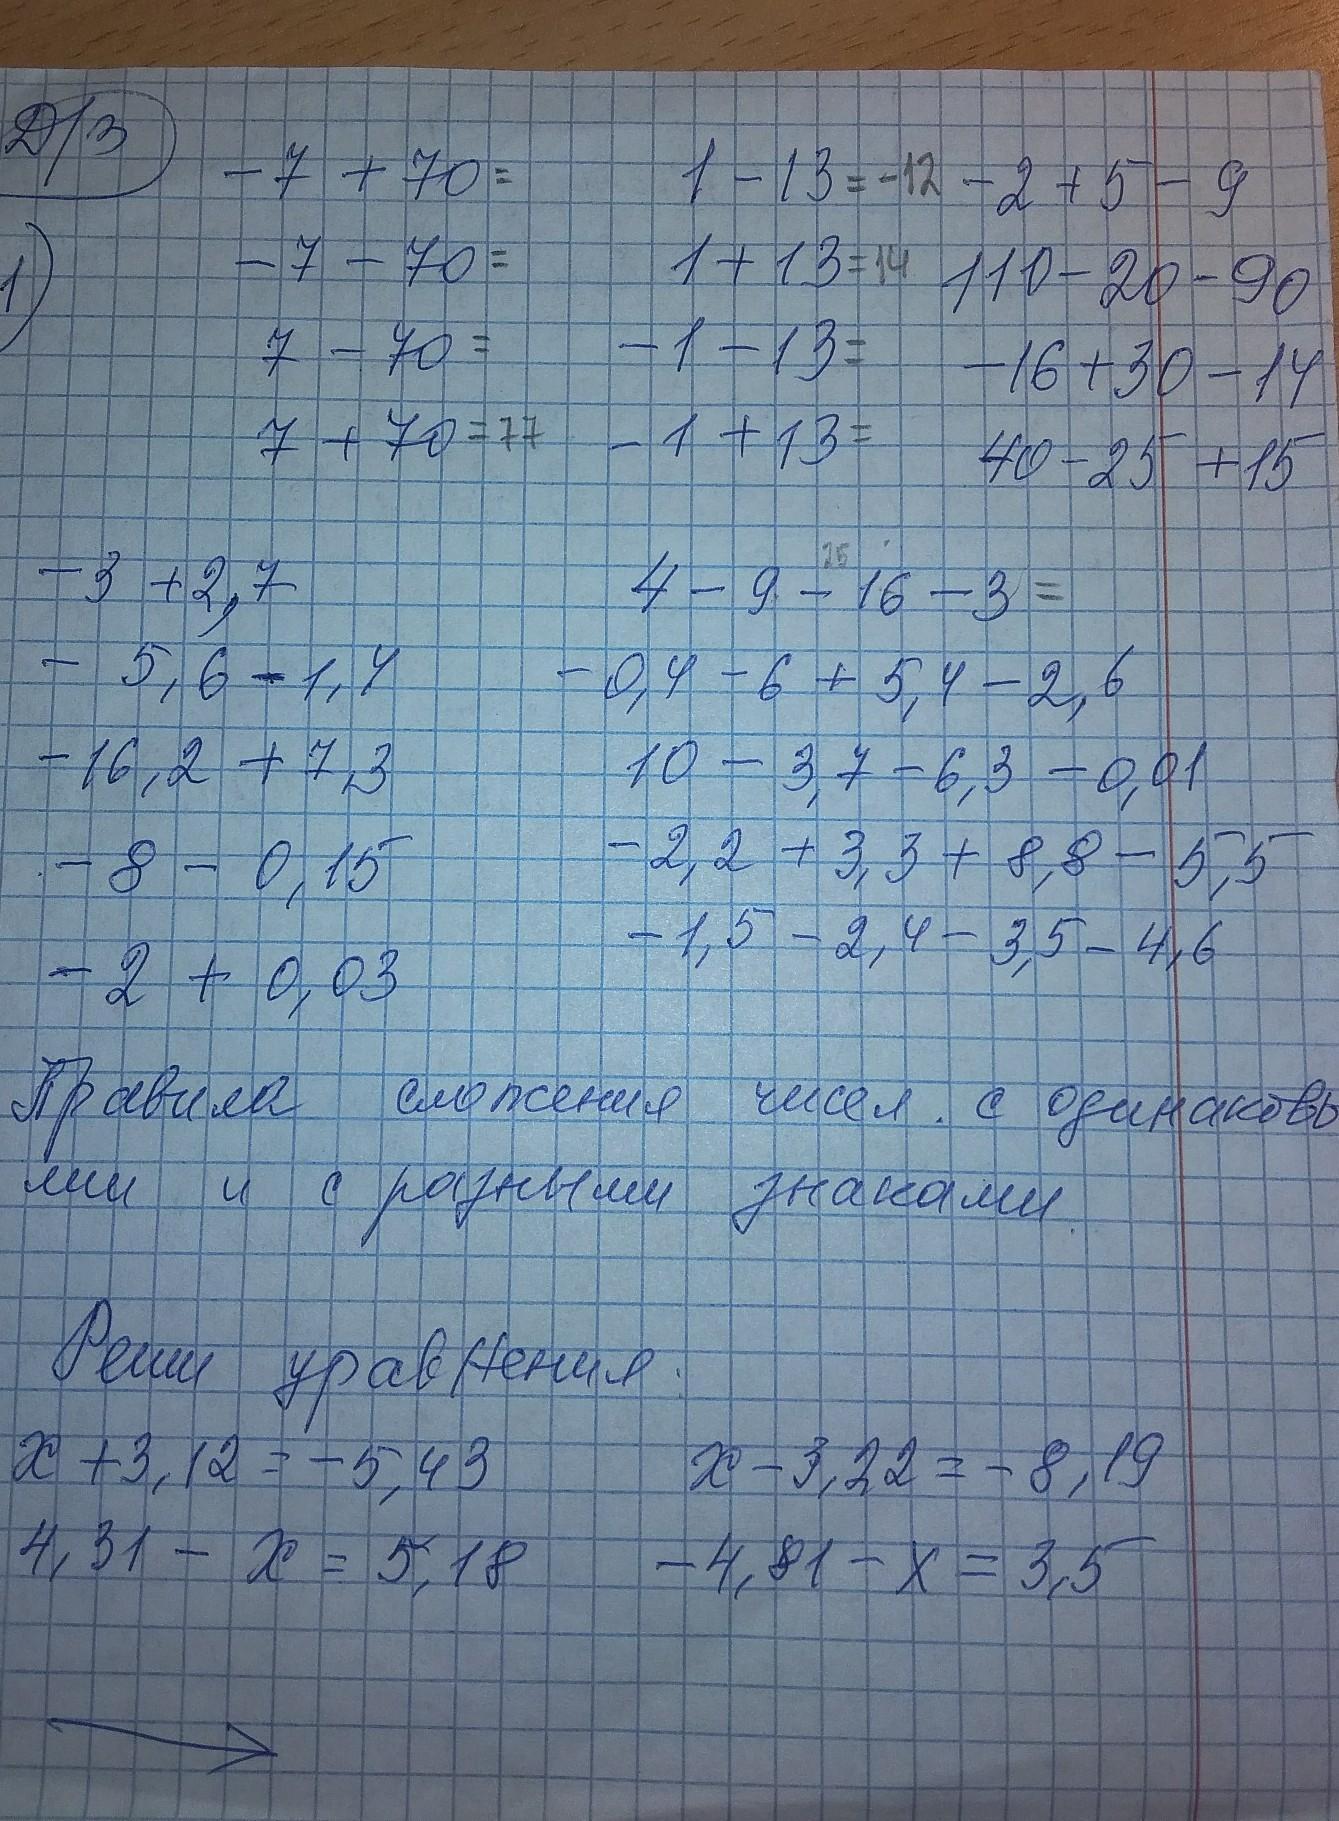 Д/З
-7 + 70 = 1 - 13 = -12 -2 + 5 - 9
1)
-7 - 70 = 1 + 13 = 14 110 - 20 - 90
7 - 70 = -1 - 13 = -16 + 30 - 14
7 + 70 = 77 -1 + 13 = 40 - 25 + 15
25
-3 + 2,7 4 - 9 - 16 - 3 =
-5,6 - 1,4 -0,4 - 6 + 5,4 - 2,6
-16,2 + 7,3 10 - 3,7 - 6,3 - 0,01
-8 - 0,15 -2,2 + 3,3 + 8,8 - 5,5
-2 + 0,03 -1,5 - 2,4 - 3,5 - 4,6
Правила сложения чисел с одинаковы
ми и с разными знаками.
Реши уравнения.
x + 3,12 = -5,43 x - 3,22 = -8,19
4,31 - x = 5,18 -4,81 - x = 3,5